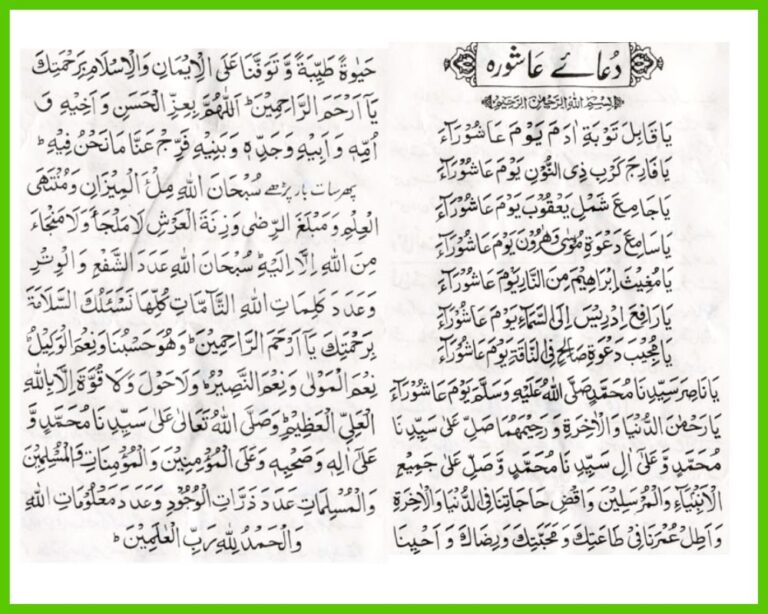 دُعائے عاشورہ
بِسْمِ اللهِ الرَّحْمٰنِ الرَّحِيْمِ
يَا قَابِلَ تَوْبَةِ اٰدَمَ يَوْمَ عَاشُوْرَآءَ
يَا فَارِجَ كَرْبِ ذِى النُّوْنِ يَوْمَ عَاشُوْرَآءَ
يَا جَامِعَ شَمْلِ يَعْقُوْبَ يَوْمَ عَاشُوْرَآءَ
يَا سَامِعَ دَعْوَةِ مُوْسٰى وَهٰرُوْنَ يَوْمَ عَاشُوْرَآءَ
يَا مُغِيْثَ اِبْرَاهِيْمَ مِنَ النَّارِ يَوْمَ عَاشُوْرَآءَ
يَا رَافِعَ اِدْرِيْسَ اِلَى السَّمَآءِ يَوْمَ عَاشُوْرَآءَ
يَا مُجِيْبَ دَعْوَةِ صَالِحٍ فِى النَّاقَةِ يَوْمَ عَاشُوْرَآءَ
يَا نَاصِرَ سَيِّدِنَا مُحَمَّدٍ صَلَّى اللهُ عَلَيْهِ وَسَلَّمَ يَوْمَ عَاشُوْرَآءَ
يَا رَحْمٰنَ الدُّنْيَا وَالْاٰخِرَةِ وَ رَحِيْمَهُمَا صَلِّ عَلٰى سَيِّدِ نَا
مُحَمَّدٍ وَّ عَلٰى اٰلِ سَيِّدِ نَا مُحَمَّدٍ وَّ صَلِّ عَلٰى جَمِيْعِ
الْاَنْبِيَآءِ وَالْمُرْسَلِيْنَ وَاقْضِ حَاجَاتِنَا فِى الدُّنْيَا وَالْاٰخِرَةِ
وَاَطِلْ عُمْرَنَا فِىْ طَاعَتِكَ وَ مَحَبَّتِكَ وَ رِضَاكَ وَ اَحْيِنَا
حَيٰوةً طَيِّبَةً وَّ تَوَفَّنَا عَلَى الْاِيْمَانِ وَالْاِسْلَامِ بِرَحْمَتِكَ
يَآ اَرْحَمَ الرَّاحِمِيْنَ ؕ اَللّٰهُمَّ بِعِزِّ الْحَسَنِ وَ اَخِيْهِ وَ
اُمِّهٖ وَ اَبِيْهِ وَجَدِّهٖ وَ بَنِيْهِ فَرِّجْ عَنَّا مَا نَحْنُ فِيْهِ ؕ
پھر سات بار پڑھے سُبْحَانَ اللهِ مِلْءَ الْمِيْزَانِ وَ مُنْتَهَى
الْعِلْمِ وَ مَبْلَغَ الرِّضٰى وَ زِنَةَ الْعَرْشِ لَا مَلْجَأَ وَ لَا مَنْجَاءَ
مِنَ اللهِ اِلَّا اِلَيْهِ ؕ سُبْحَانَ اللهِ عَدَدَ الشَّفْعِ وَ الْوِتْرِ
وَ عَدَدَ كَلِمَاتِ اللهِ التَّآمَّاتِ كُلِّهَا نَسْئَلُكَ السَّلَامَةَ
بِرَحْمَتِكَ يَآ اَرْحَمَ الرَّاحِمِيْنَ ؕ وَهُوَ حَسْبُنَا وَ نِعْمَ الْوَكِيْلُ ؕ
نِعْمَ الْمَوْلٰى وَ نِعْمَ النَّصِيْرُ ؕ وَ لَا حَوْلَ وَ لَا قُوَّةَ اِلَّا بِاللهِ
الْعَلِىِّ الْعَظِيْمِ ؕ وَصَلَّى اللهُ تَعَالٰى عَلٰى سَيِّدِ نَا مُحَمَّدٍ وَّ
عَلٰى اٰلِهٖ وَ صَحْبِهٖ وَ عَلَى الْمُؤْمِنِيْنَ وَ الْمُؤْمِنَاتِ وَالْمُسْلِمِيْنَ
وَ الْمُسْلِمَاتِ عَدَدَ ذَرَّاتِ الْوُجُوْدِ وَ عَدَدَ مَعْلُوْمَاتِ اللهِ
وَالْحَمْدُ لِلّٰهِ رَبِّ الْعٰلَمِيْنَ ؕ